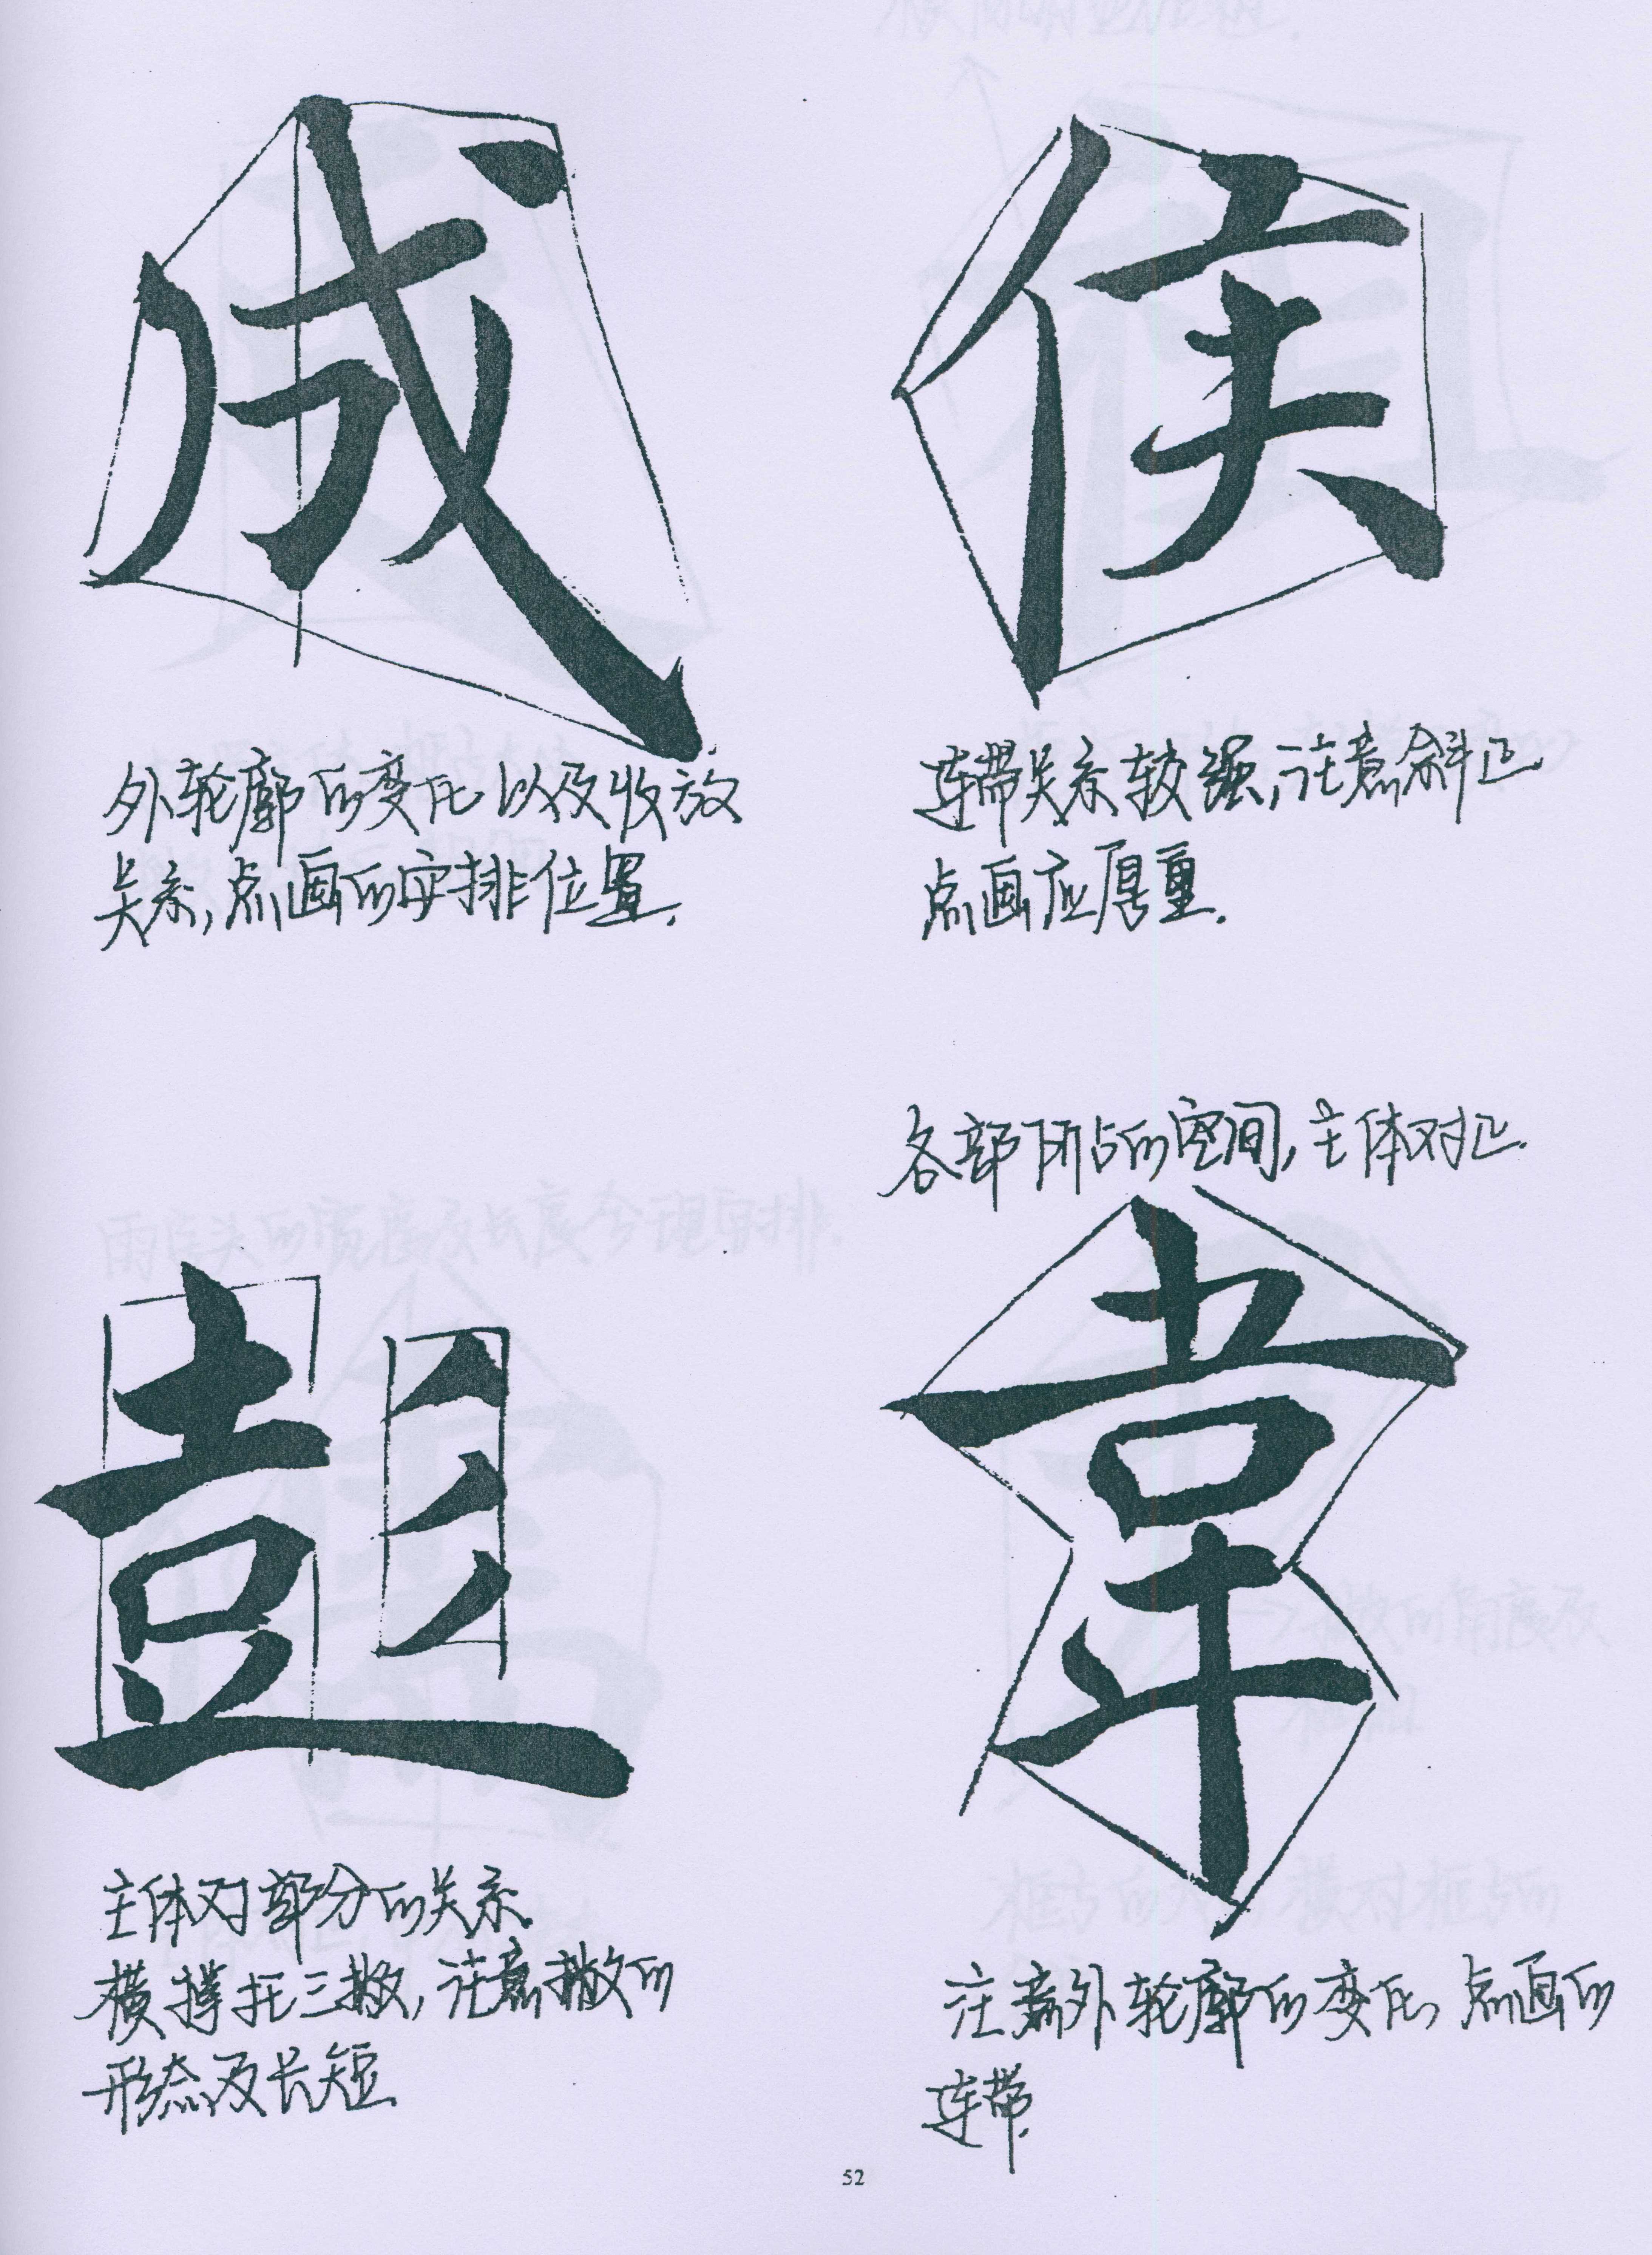 成
外轮廓的变化以及收放
关系,点画的安排位置.
侯
连带关系较强,注意斜正
点画应厚重.
彭
主体对部分的关系.
横撑托三撇,注意撇的
形态及长短
各部所占的空间,主体对正.
韋
注意外轮廓的变化,点画的
连带.
52